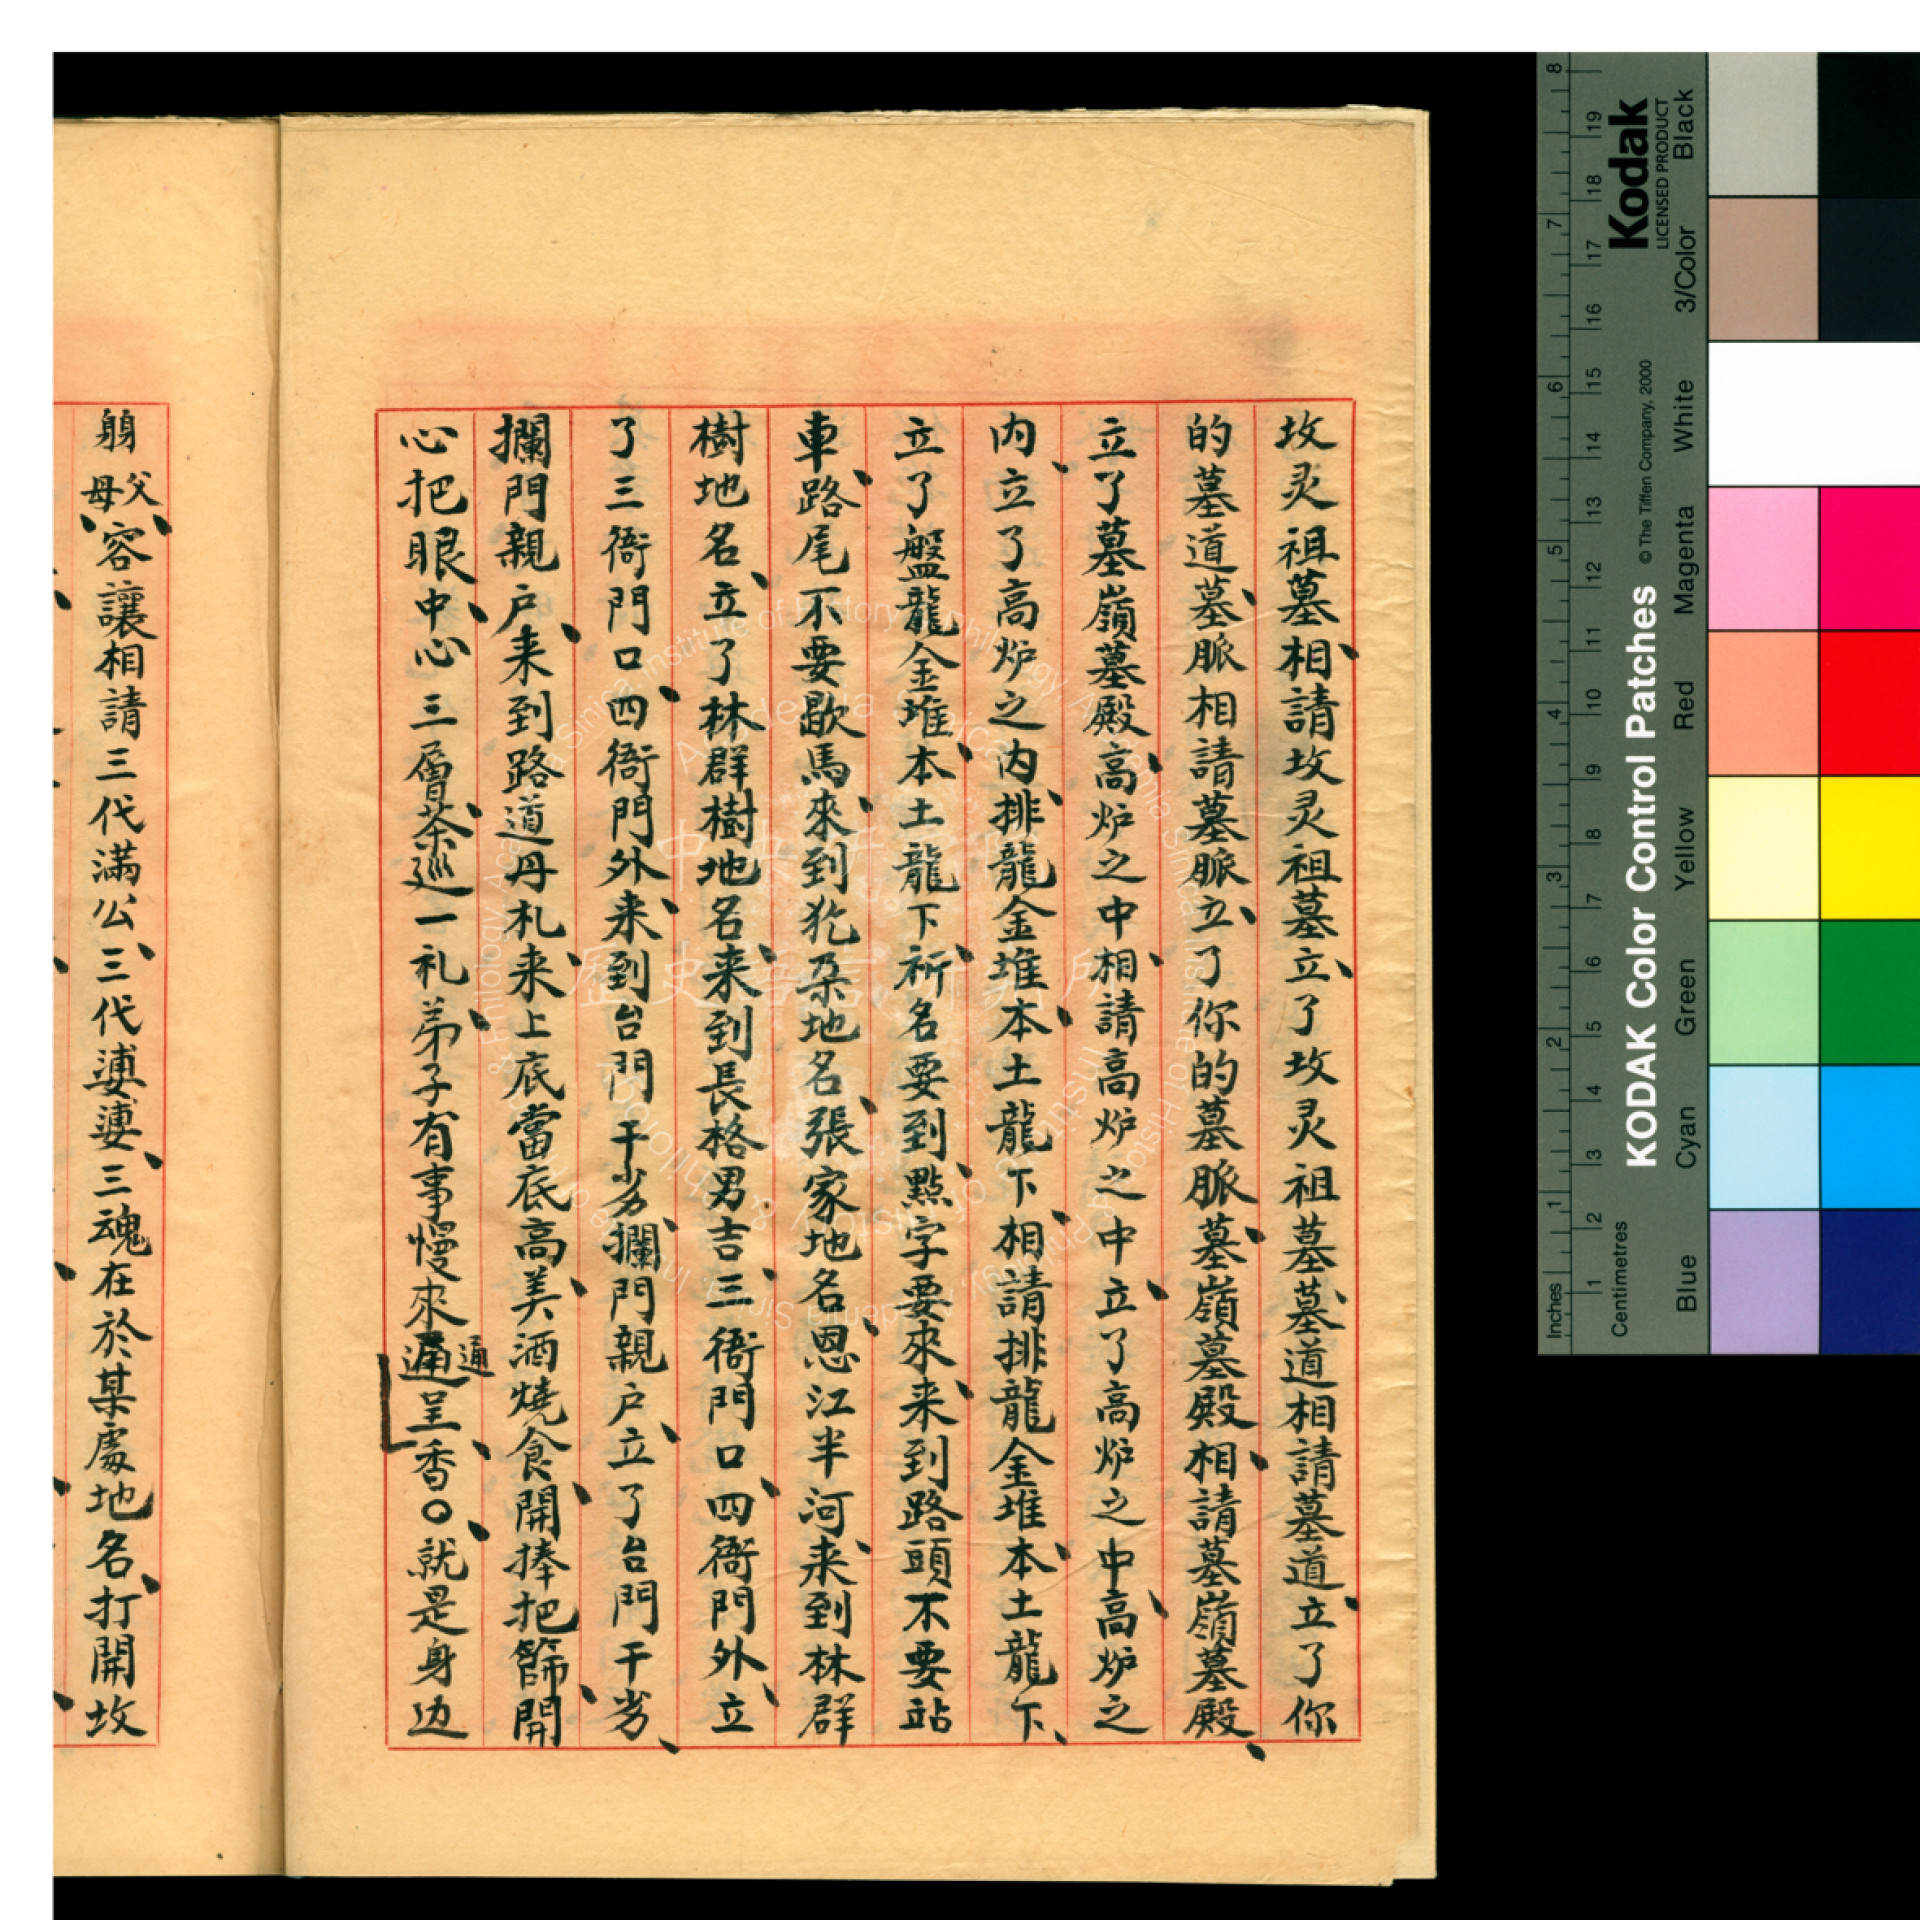 坟灵祖墓、相請坟灵祖墓立、了坟灵祖墓墓、道相請墓道立、了你
的墓道墓、脈相請墓脈立、了你的墓脈墓、嶺墓殿相、請墓嶺墓殿、
立了墓嶺墓殿高、炉之中相、請高炉之中立、了高炉之中高、炉之
内、立了高炉之内排、龍金堆本、土龍下相、請排龍金堆本、土龍下、
立了盤龍金堆本、土龍下祈、名要到點、字要來来、到路頭不要站
車路、尾不要歇馬來、到犵朶地名張、家地名恩、江半河来、到林群
樹地名立、了林群樹地名来、到長格男吉三、衙門口四、衙門外立、
了三衙門口四、衙門外来、到台門干劣攔、門親户立、了台門干劣、
攔門親户来、到路道丹札来、上底當底高美、酒燒食開、捧把篩開、
心把眼中心、三層茶、巡一礼弟、子有事慢來通呈香、〇就、是身边
通
躬父母、容讓相請三代滿公三、代婆婆三、魂在於某處地名打、開坟
Kodak
LICENSED PRODUCT
KODAK Color Control Patches
© The Tiffen Company, 2000
Black
3/Color
White
Magenta
Red
Yellow
Green
Cyan
Blue
Inches
1 2 3 4 5 6 7 8
Centimetres
1 2 3 4 5 6 7 8 9 10 11 12 13 14 15 16 17 18 19
中央研究院
歷史語言研究所
Institute of History & Philology, Academia Sinica